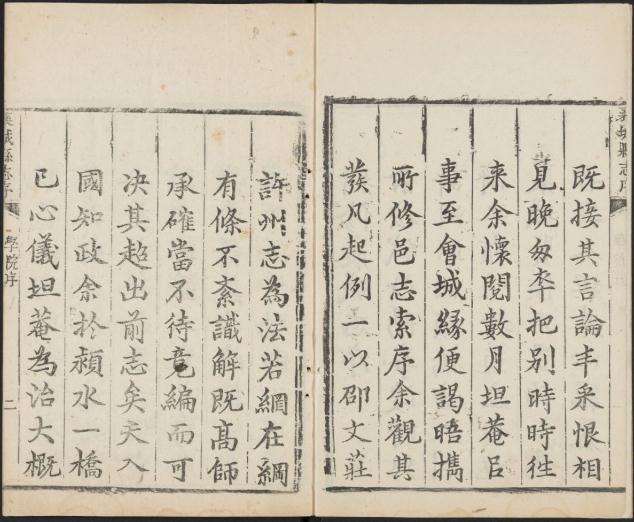 既接其言論丰采恨相
見晚匆卒把別時時徃
来余懷閱數月坦菴㠯
事至會城縁便謁晤攜
所修邑志索序余觀其
發凡起例一以邵文莊
許州志為法若綱在綱
有條不紊識解既高師
承確當不待竟編而可
决其超出前志矣夫入
國知政余扵潁水一橋
已心儀坦菴為治大概
襄城縣志序
學院序
二